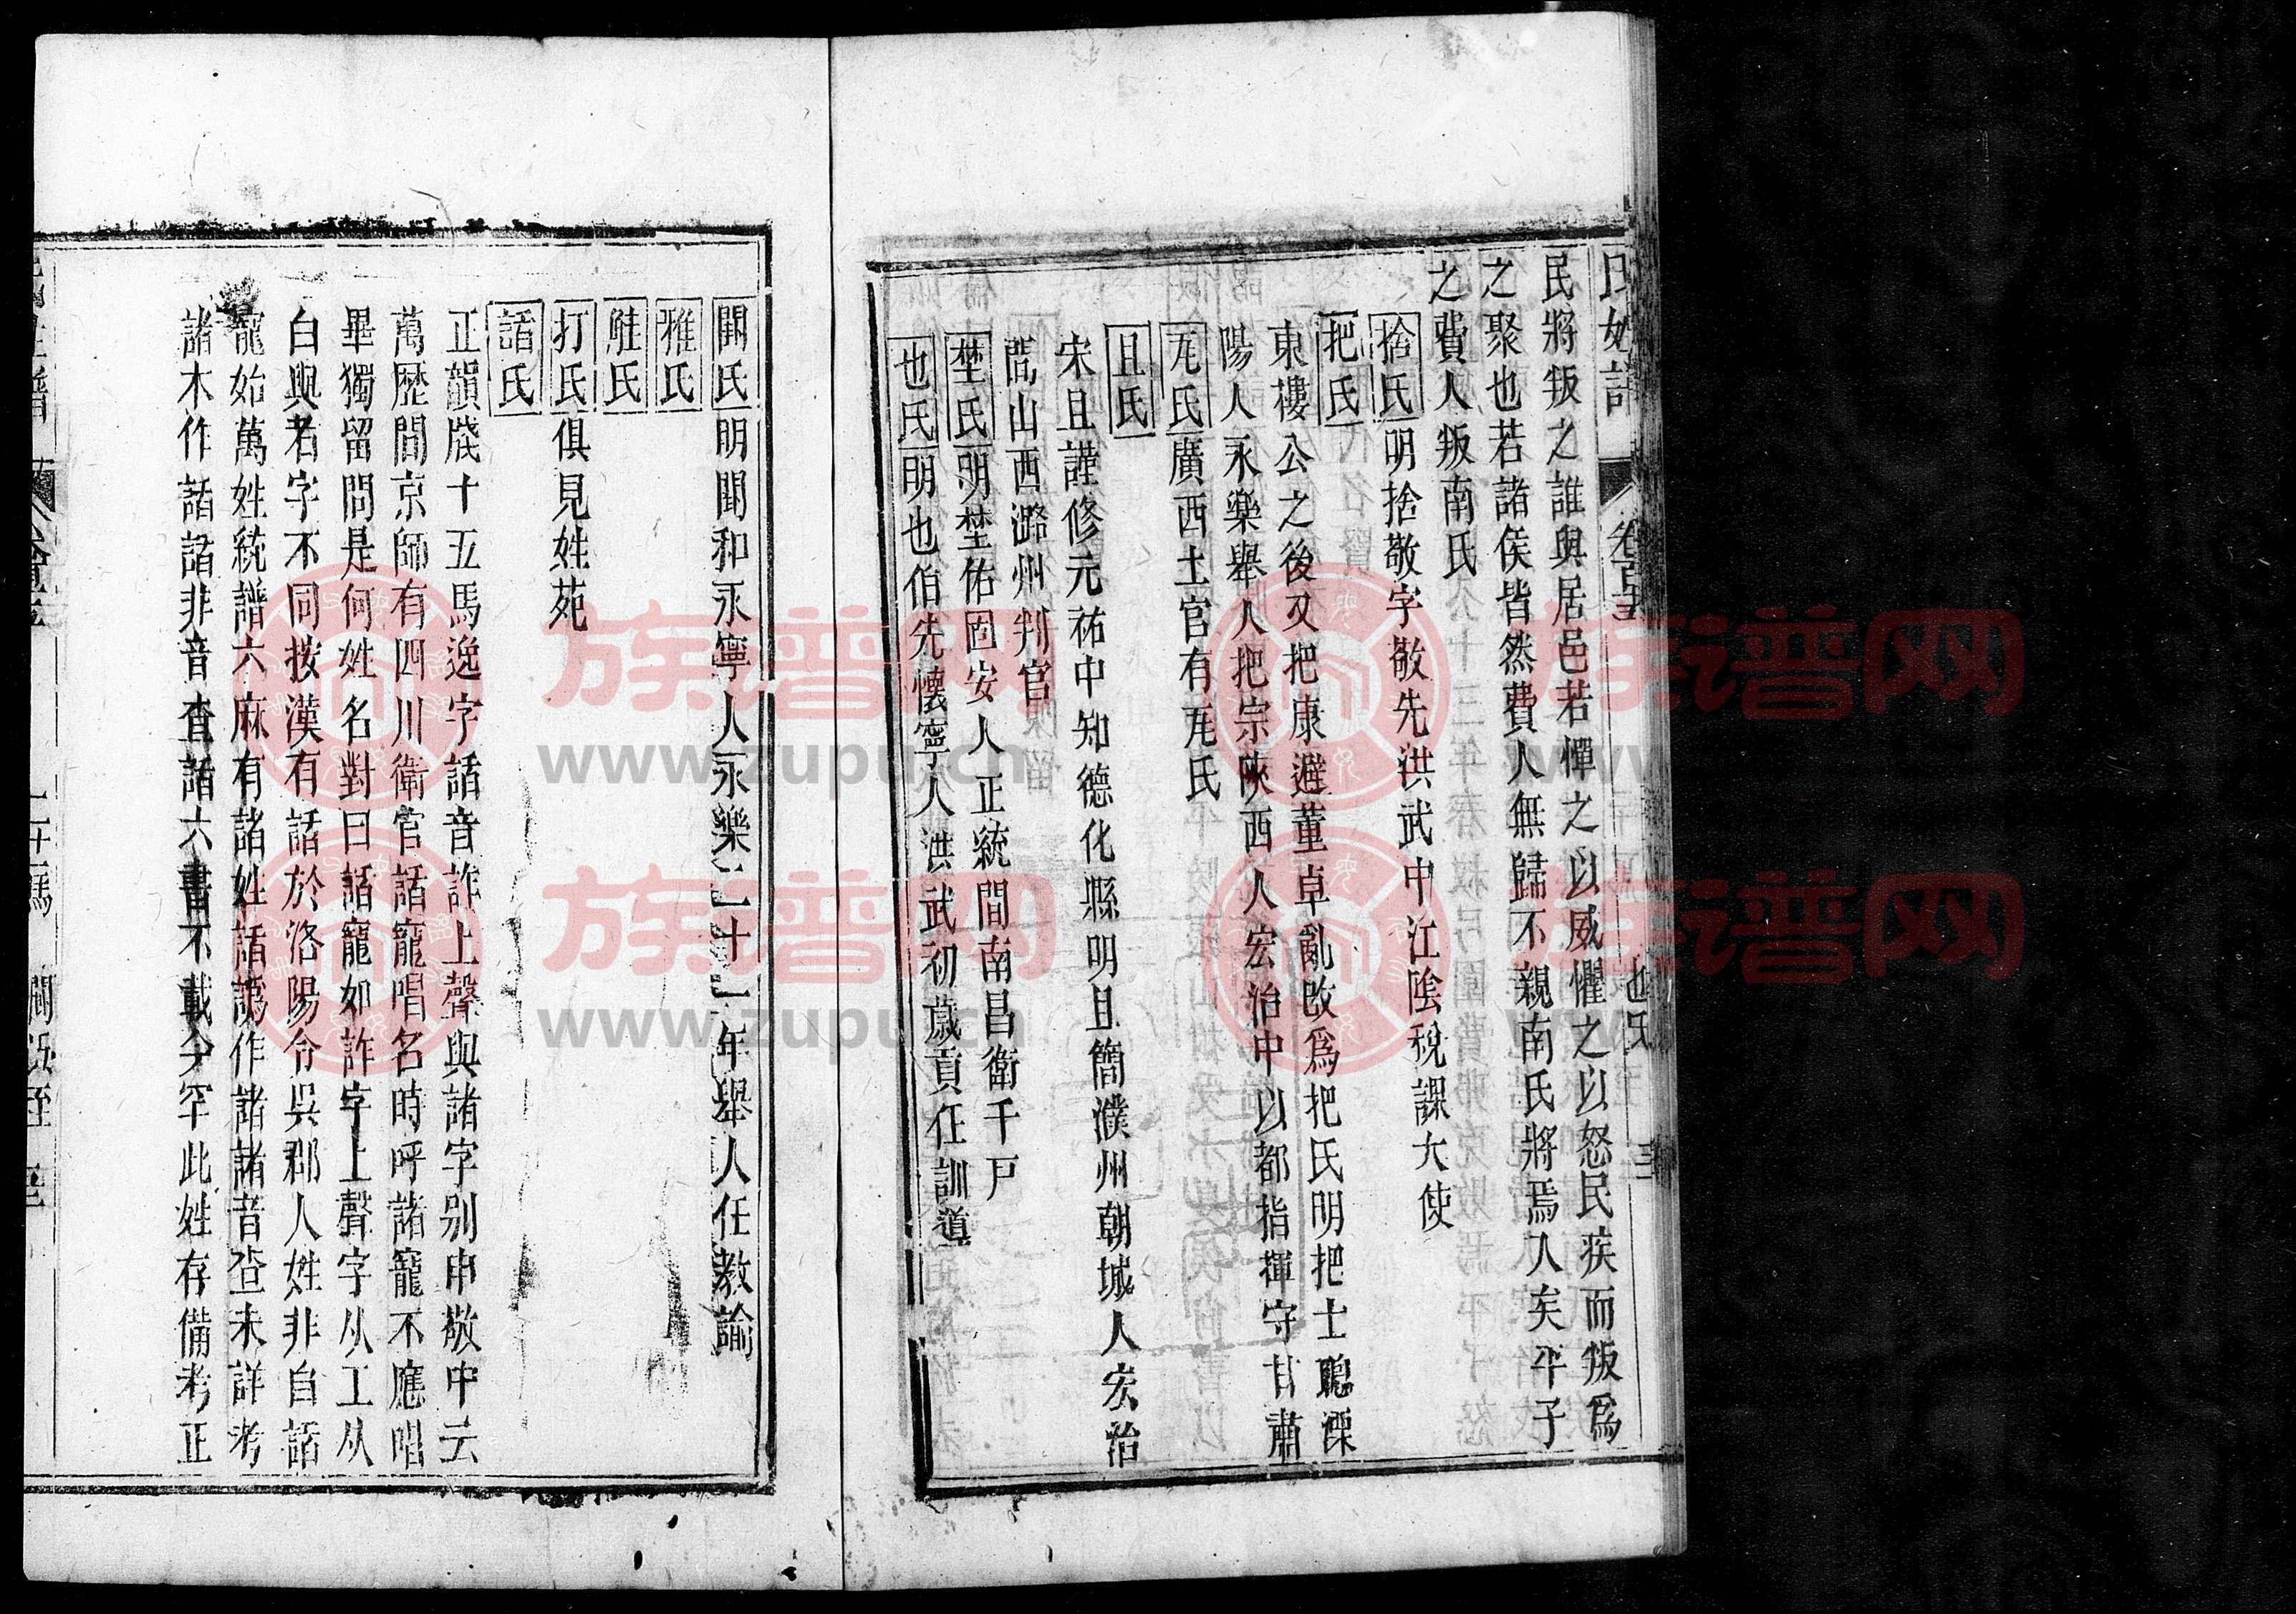 民將叛之誰與居邑若憚之以威懼之以怒民疾而叛爲
之聚也若諸侯皆然費人無歸不親南氏將焉入矣平子
之費人叛南氏
捨氏明捨敬字敬先洪武中江陰稅課大使
把氏
東樓公之後又把康避董卓亂改爲把氏明把士聰溧
陽人永樂舉人把宗陝西人宏治中以都指揮守甘肅
厑氏廣西土官有厑氏
且氏
宋且謹修元祐中知德化縣明且簡濮州朝城人宏治
間山西潞州判官
埜氏明埜佑固安人正統間南昌衛千戸
也氏明也伯先懷寧人洪武初歲貢任訓導
也氏
三
閗氏明閗和永寧人永樂二十一年舉人任教諭
雅氏
鮭氏
打氏俱見姓苑
䛽氏
正韻牋十五馬逸字䛽音詐上聲與諸字别申敬中云
萬歷間京師有四川衛官䛽寵唱名時呼諸寵不應唱
畢獨留問是何姓名對曰䛽寵如詐字上聲字从工从
白與者字不同按漢有䛽於洛陽令吳郡人姓非自䛽
寵始萬姓統譜六麻有諸姓䛽譌作諸諸音查未詳考
諸木作䛽諸非音查䛽六書不載今罕此姓存備考正
族谱网
www.zupu.cn
族谱网
www.zupu.cn
族谱网
www.zupu.cn
族谱网
www.zupu.cn